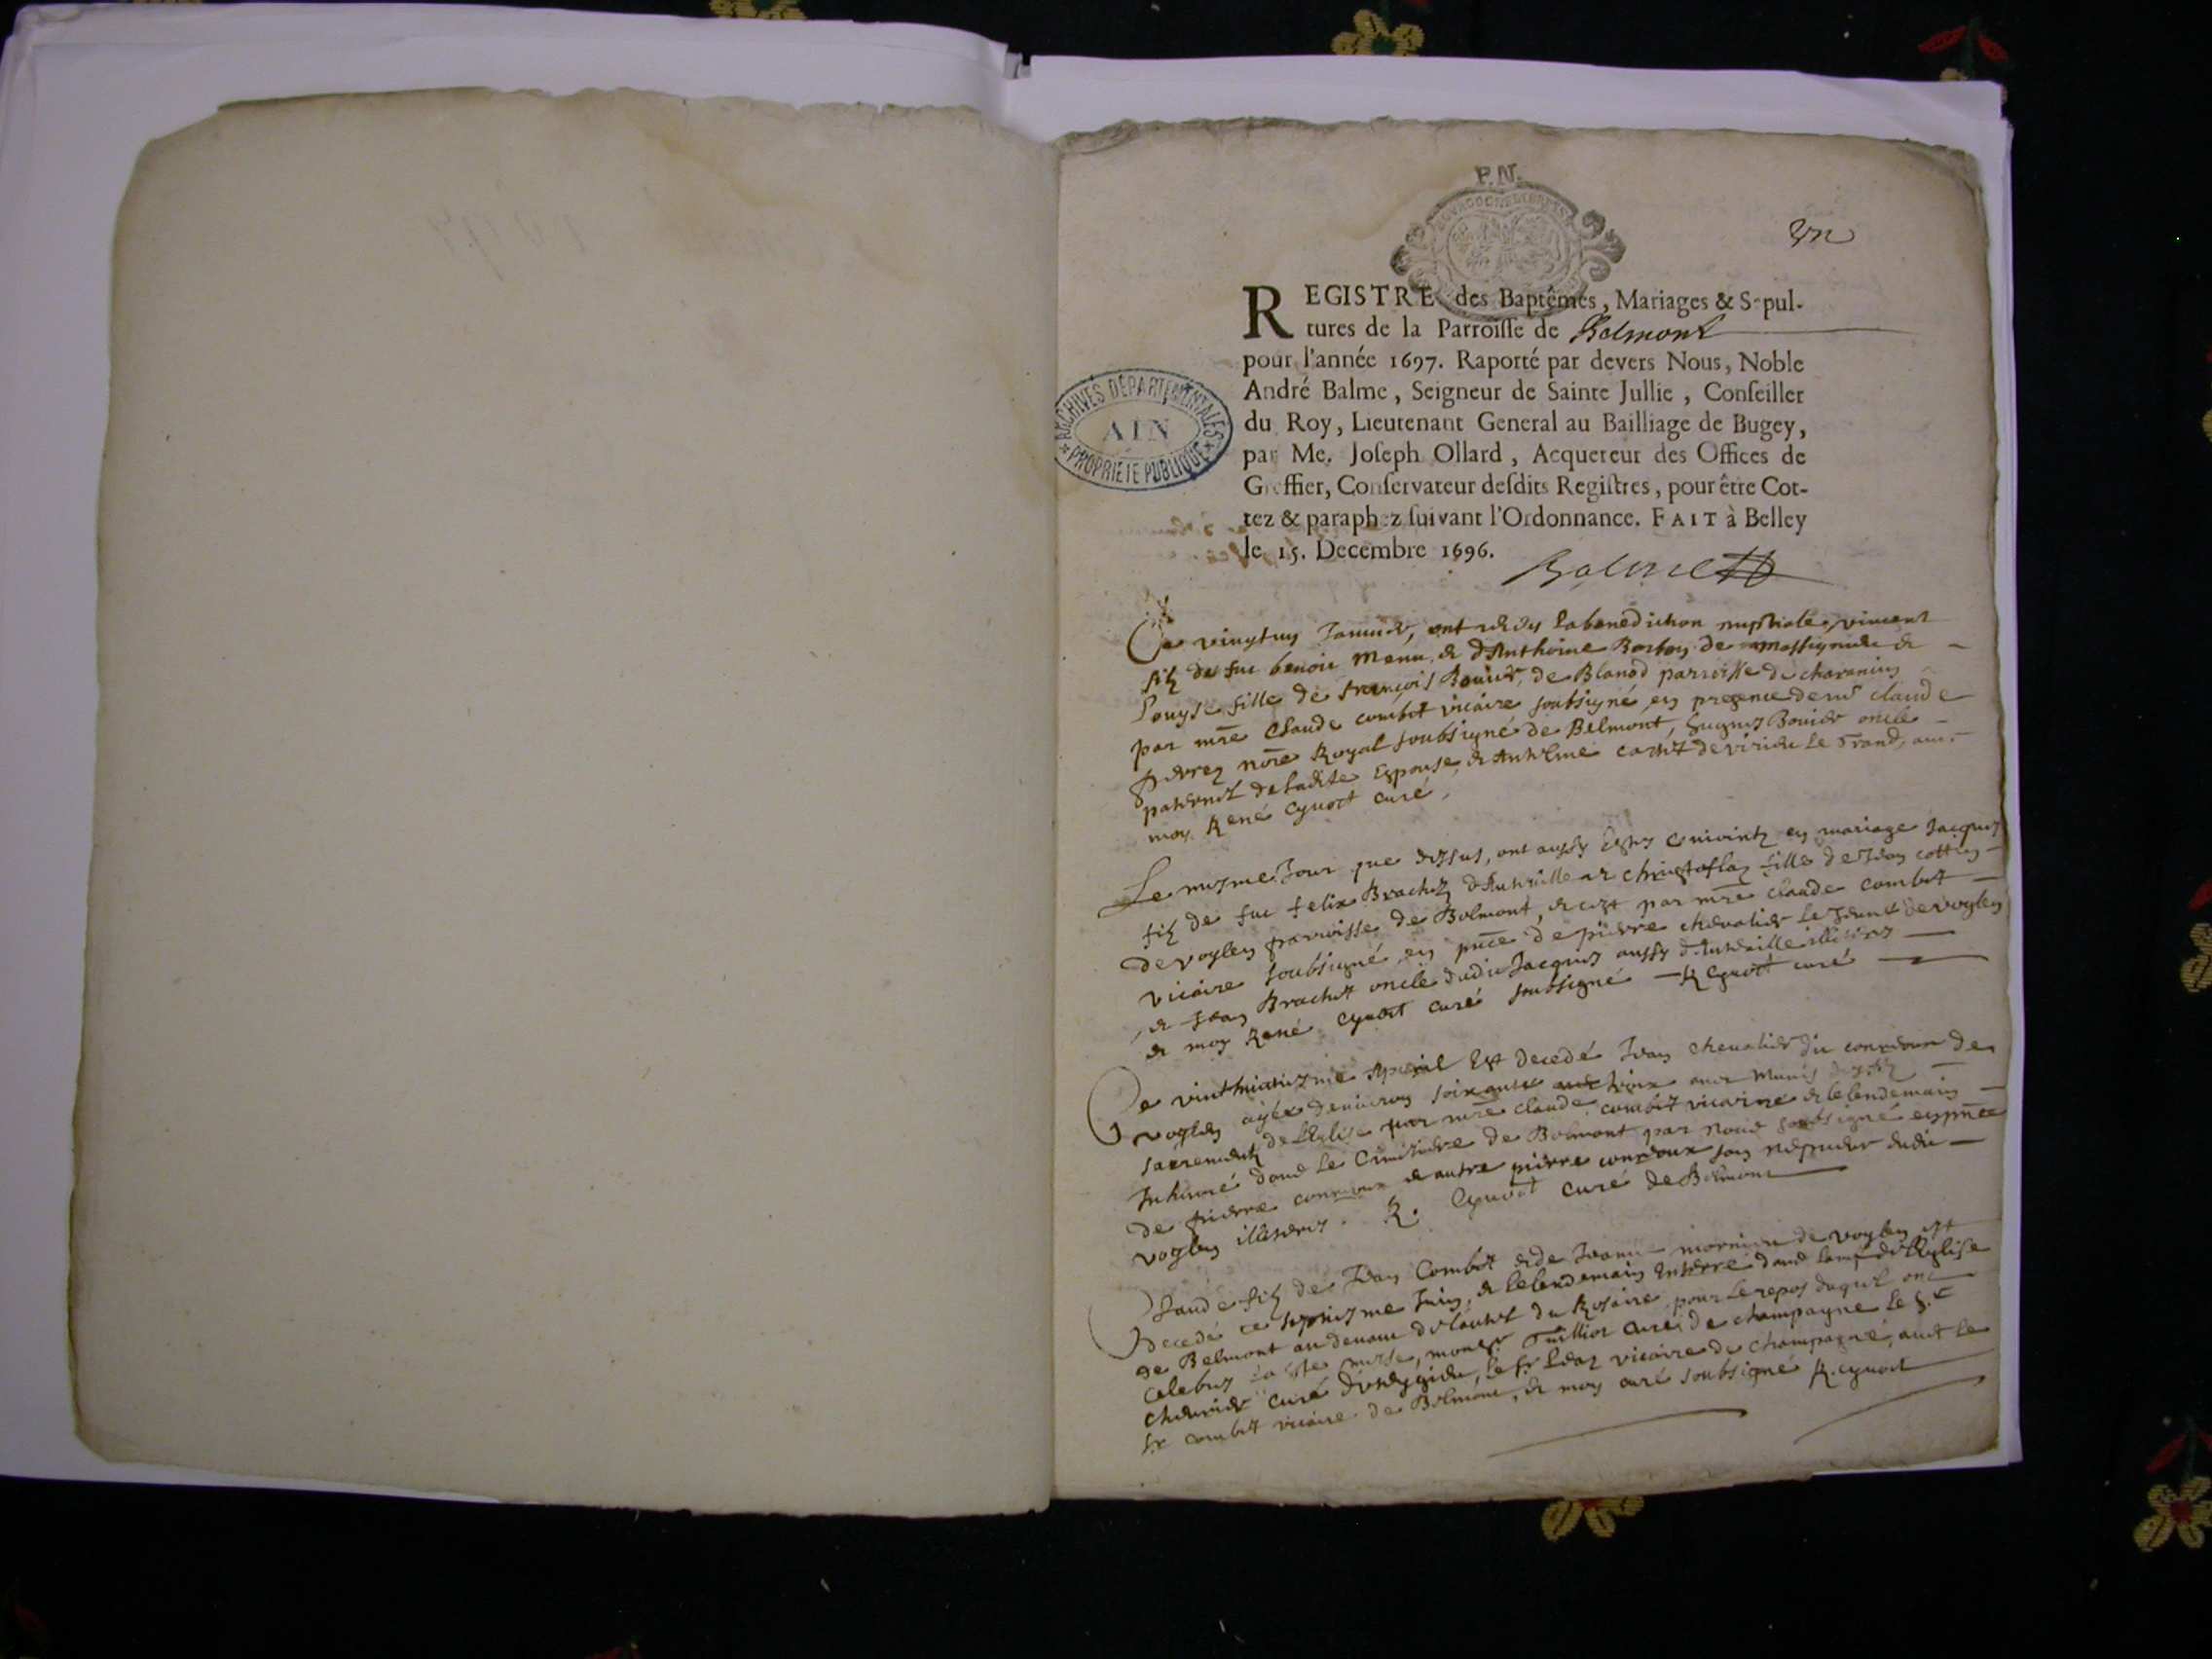 P.N.
un
REGISTRE des Baptêmes, Mariages & Sepul-
tures de la Parroisse de Belmont
pour l'année 1697. Raporté par devers Nous, Noble
André Balme, Seigneur de Sainte Jullie, Conseiller
du Roy, Lieutenant General au Bailliage de Bugey,
par Me. Joseph Ollard, Acquereur des Offices de
Greffier, Conservateur desdits Registres, pour être Cot-
tez & paraphez suivant l'Ordonnance. FAIT à Belley
le 15. Decembre 1696.
Balme
ARCHIVES DÉPARTEMENTALES
AIN
PROPRIETE PUBLIQUE
Ce vingtun Janvier, ont la benediction nuptiale, vincent
filz de feu benoit Menu, & d'Anthoine de &
Louyse fille de françois Bouier, de Blanod parroisse de charancin
par mre Claude combet vicaire soubsigné en presence de mr claude
nore Royal soubsigné de Belmont, hugues Bouier oncle
paternel de ladite Espouse, & Anthelme de virieu le Grand, avec
moy René Cyvoct curé,
Le mesme Jour que dessus, ont aussy Estes en mariage Jacques
filz de feu felix Brachet et christoflaz fille de Jean cottin
de voglen parroisse de Belmont, & par mre claude combet
vicaire soubsigné, en pnce de pierre chevalier le Jeune de voglen
& Jean Brachet oncle dudit Jacques aussy illiteres
& moy René Cyvoct curé soubsigné R Cyvoct curé
Ce vinthuictiesme Apvril Est decedé Jean chevalier dit de
voglen aagé denviron soixante ans muni des
sacrements de l'Eglise par mre claude combet vicaire & le lendemain
Inhumé dans le Cimistiere de Belmont par nous soubsigné en pnce
de pierre & autre pierre son nepveu dudit
voglen illiteres. R. Cyvoct curé de Belmont
Claude filz de Jean Combet & de Jeanne de voglen est
decedé ce Juin, & le lendemain Enterré dans la nef de l'Eglise
de Belmont au devant de l'autel du Rosaire pour le repos duquel ont
celebres la ste messe, monsr Guillot curé de champagne le Sr
curé, le Sr vicaire de champagne, avec le
Sr combet vicaire de Belmont, & moy curé soubsigné R. Cyvoct